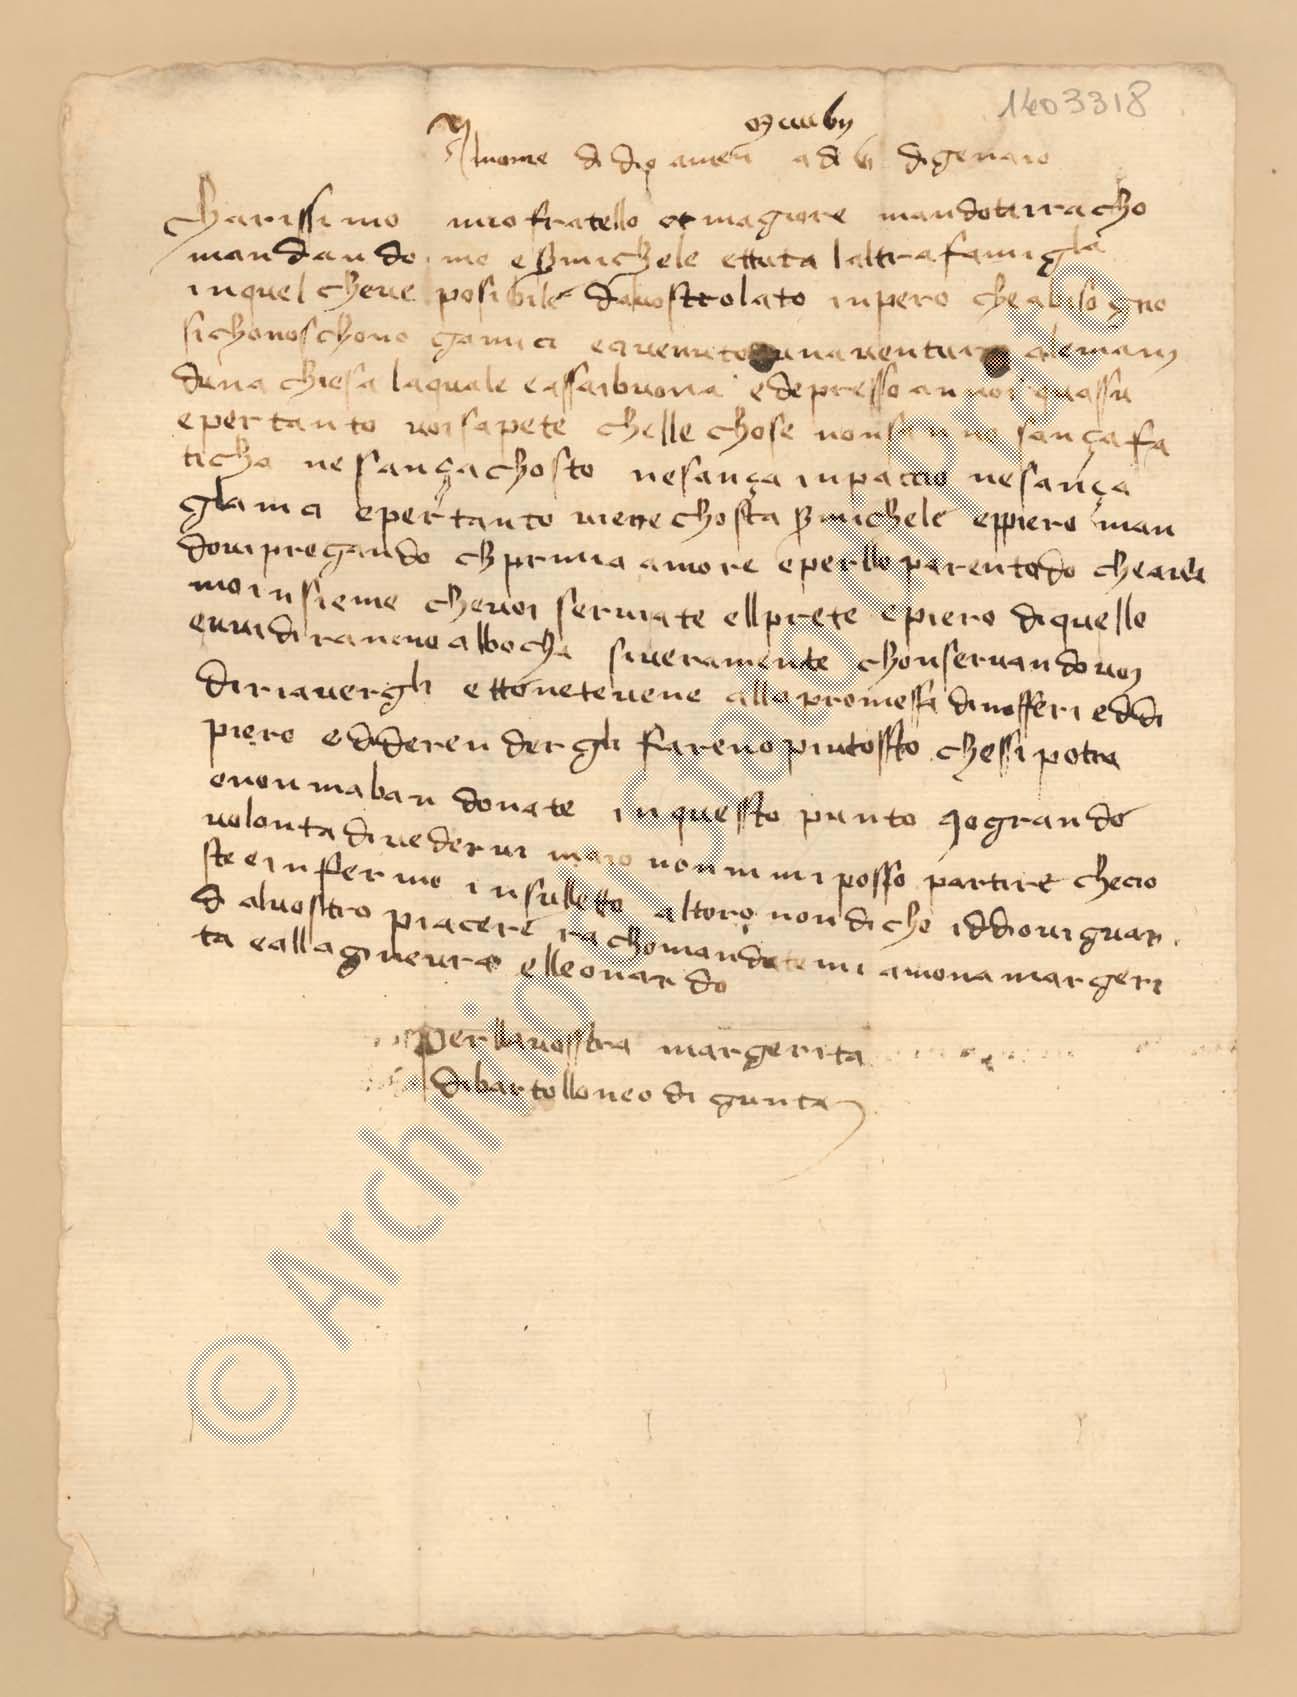 1403318
Innome di dio amen adi 6 di gennaio
charissimo mio fratello et magiore mandotiracho
mandando me e s michele ettuta laltra famigla
inquel cheve posibile davosttro lato inpero che alisogno
sichonoschono gamici eavenito una ventura alemani
duna chiesa laquale eassaibuona edepresso annoi quassu
epertanto voisapete chelle chose nonsanno sança fa
ticha nesança chosto nesança inpaccio nesança
glamici epertanto viene chosta s michele eppiero man
dovi pregando ch prima amore eperllo parentado che avia
mo insieme chevoi serviate ellprete epiero diquello
evvidiranno abbocha siveramente chonservandovoi
diriavergli ettonetevene alla promessa dinofferi eddi
piero eddiderendergli fareno piutossto chessi potra
enonmabandonate inquessto punto ogrande
volonta divedervi maio nonmi posso partire checio
ste e infermo insulletto altoro nondicho iddiovi guar
d alvostro piacere rachomandatemi amona margeri
ta eallaginevra elleonardo
Perllavosstra margerita
dibartollomeo di giunta
© Archivio di Stato di Prato